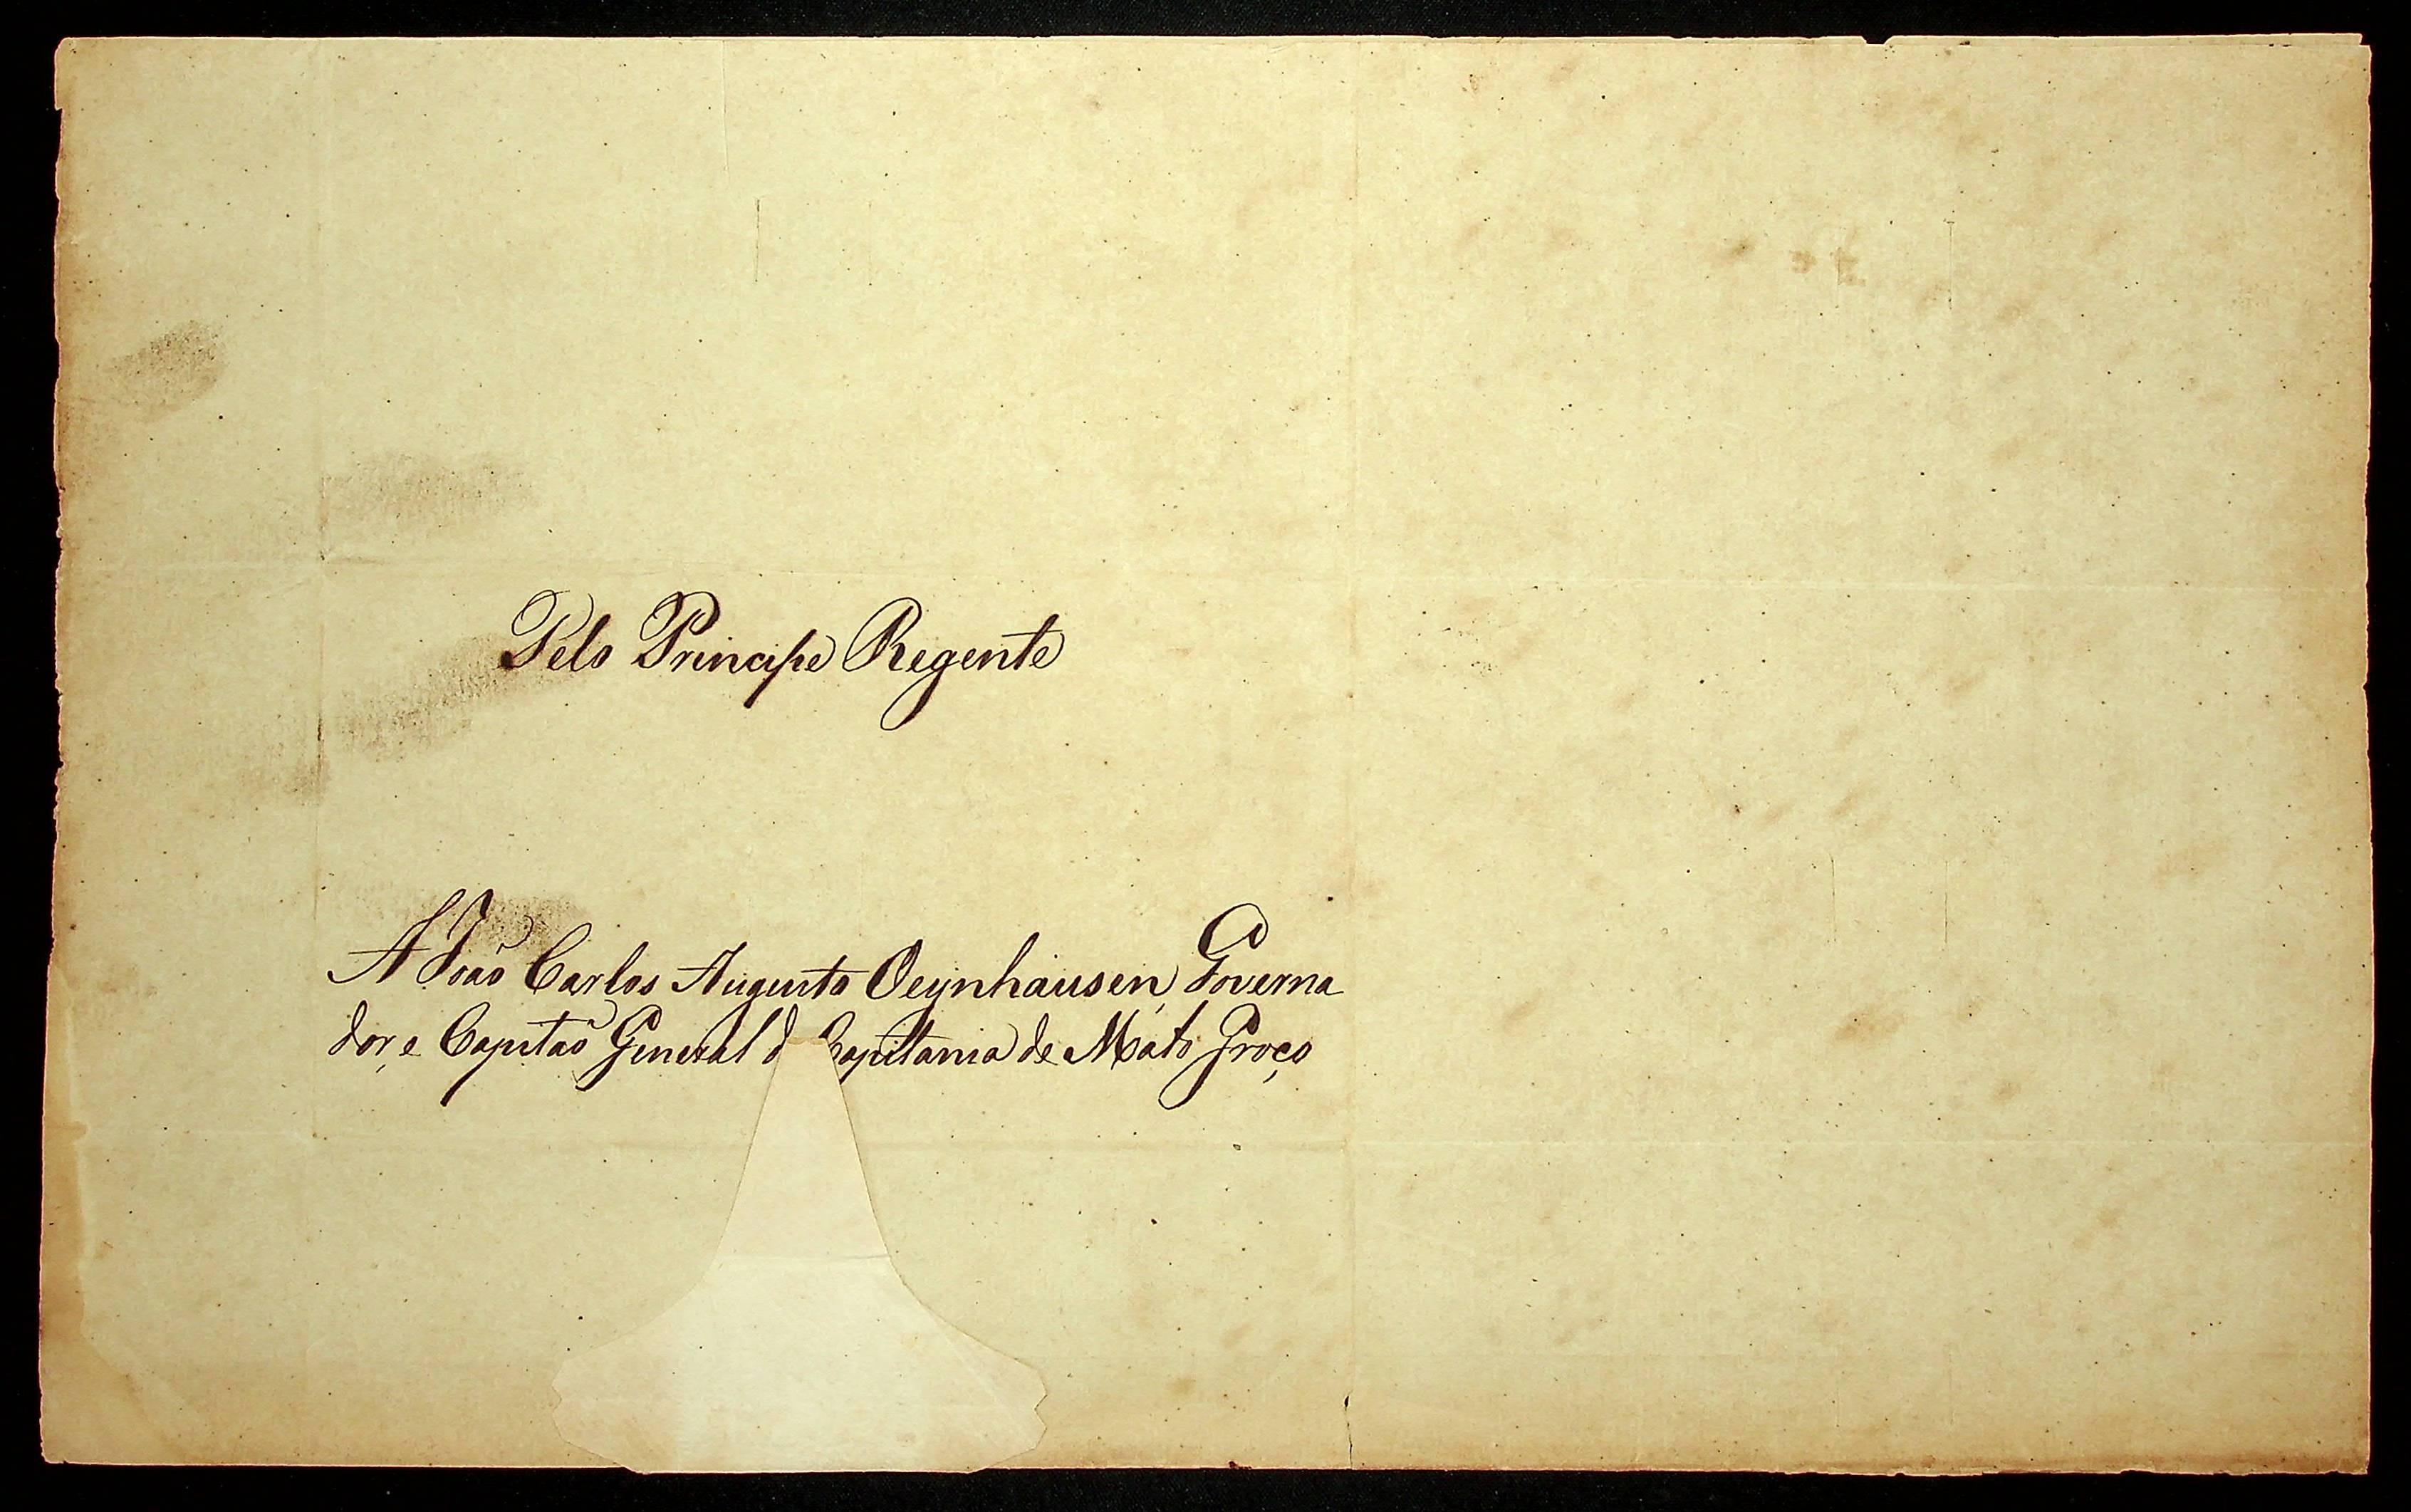 Pelo Principe Regente
A João Carlos Augusto Oeynhausen, Governa
dor, e Capitaõ General d Capitania de Mato Groço